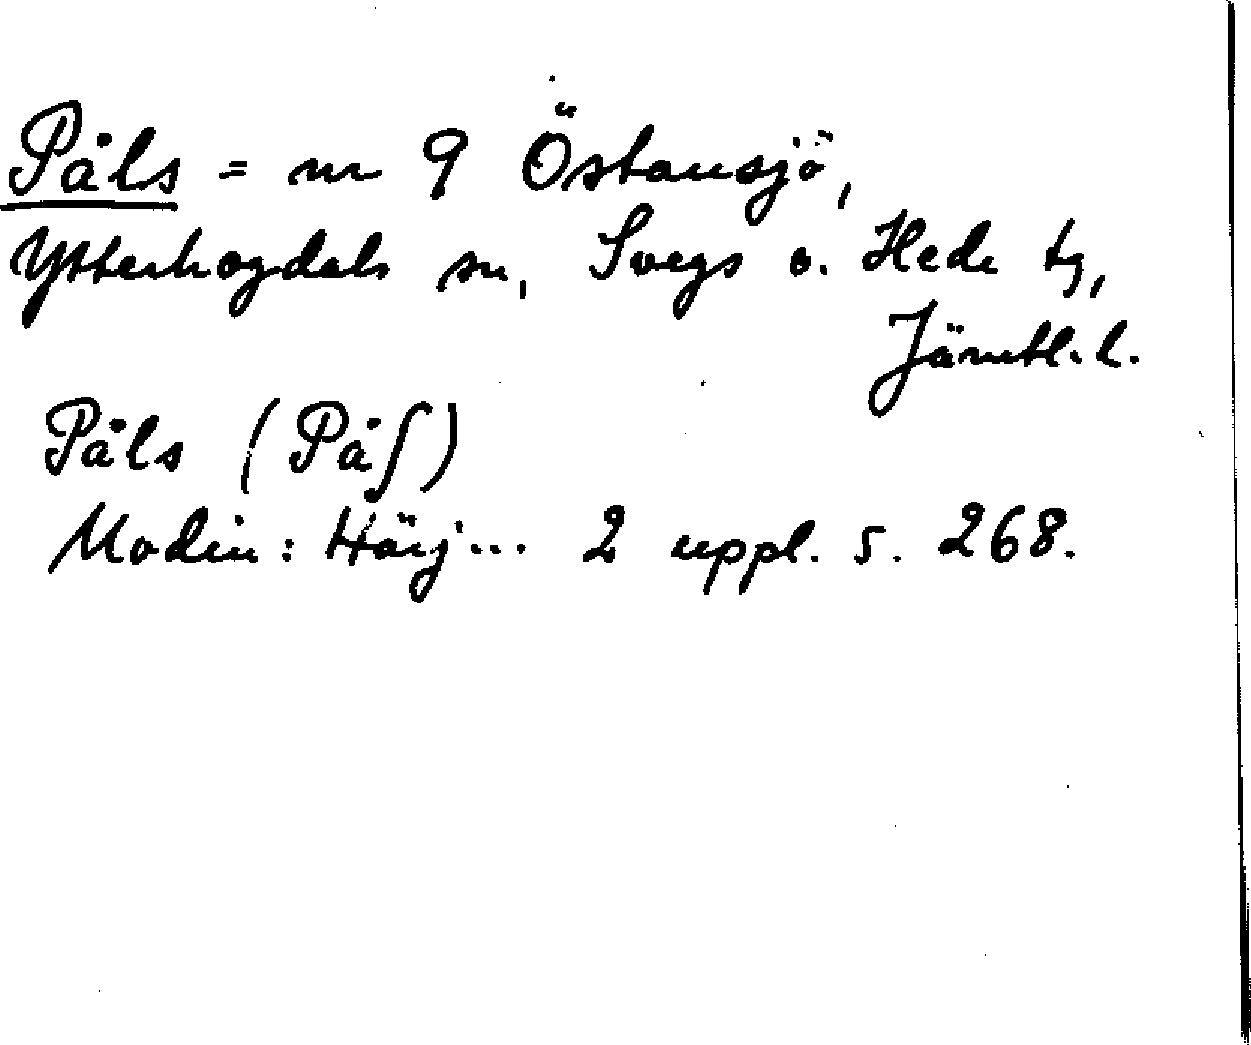 Påls = nr 9 Östansjö,
Ytterhogdals sn, Svegs o. Hede tg,
Jämtl. l.
Påls (Påʃ)
Modin: Härj... 2 uppl. s. 268.